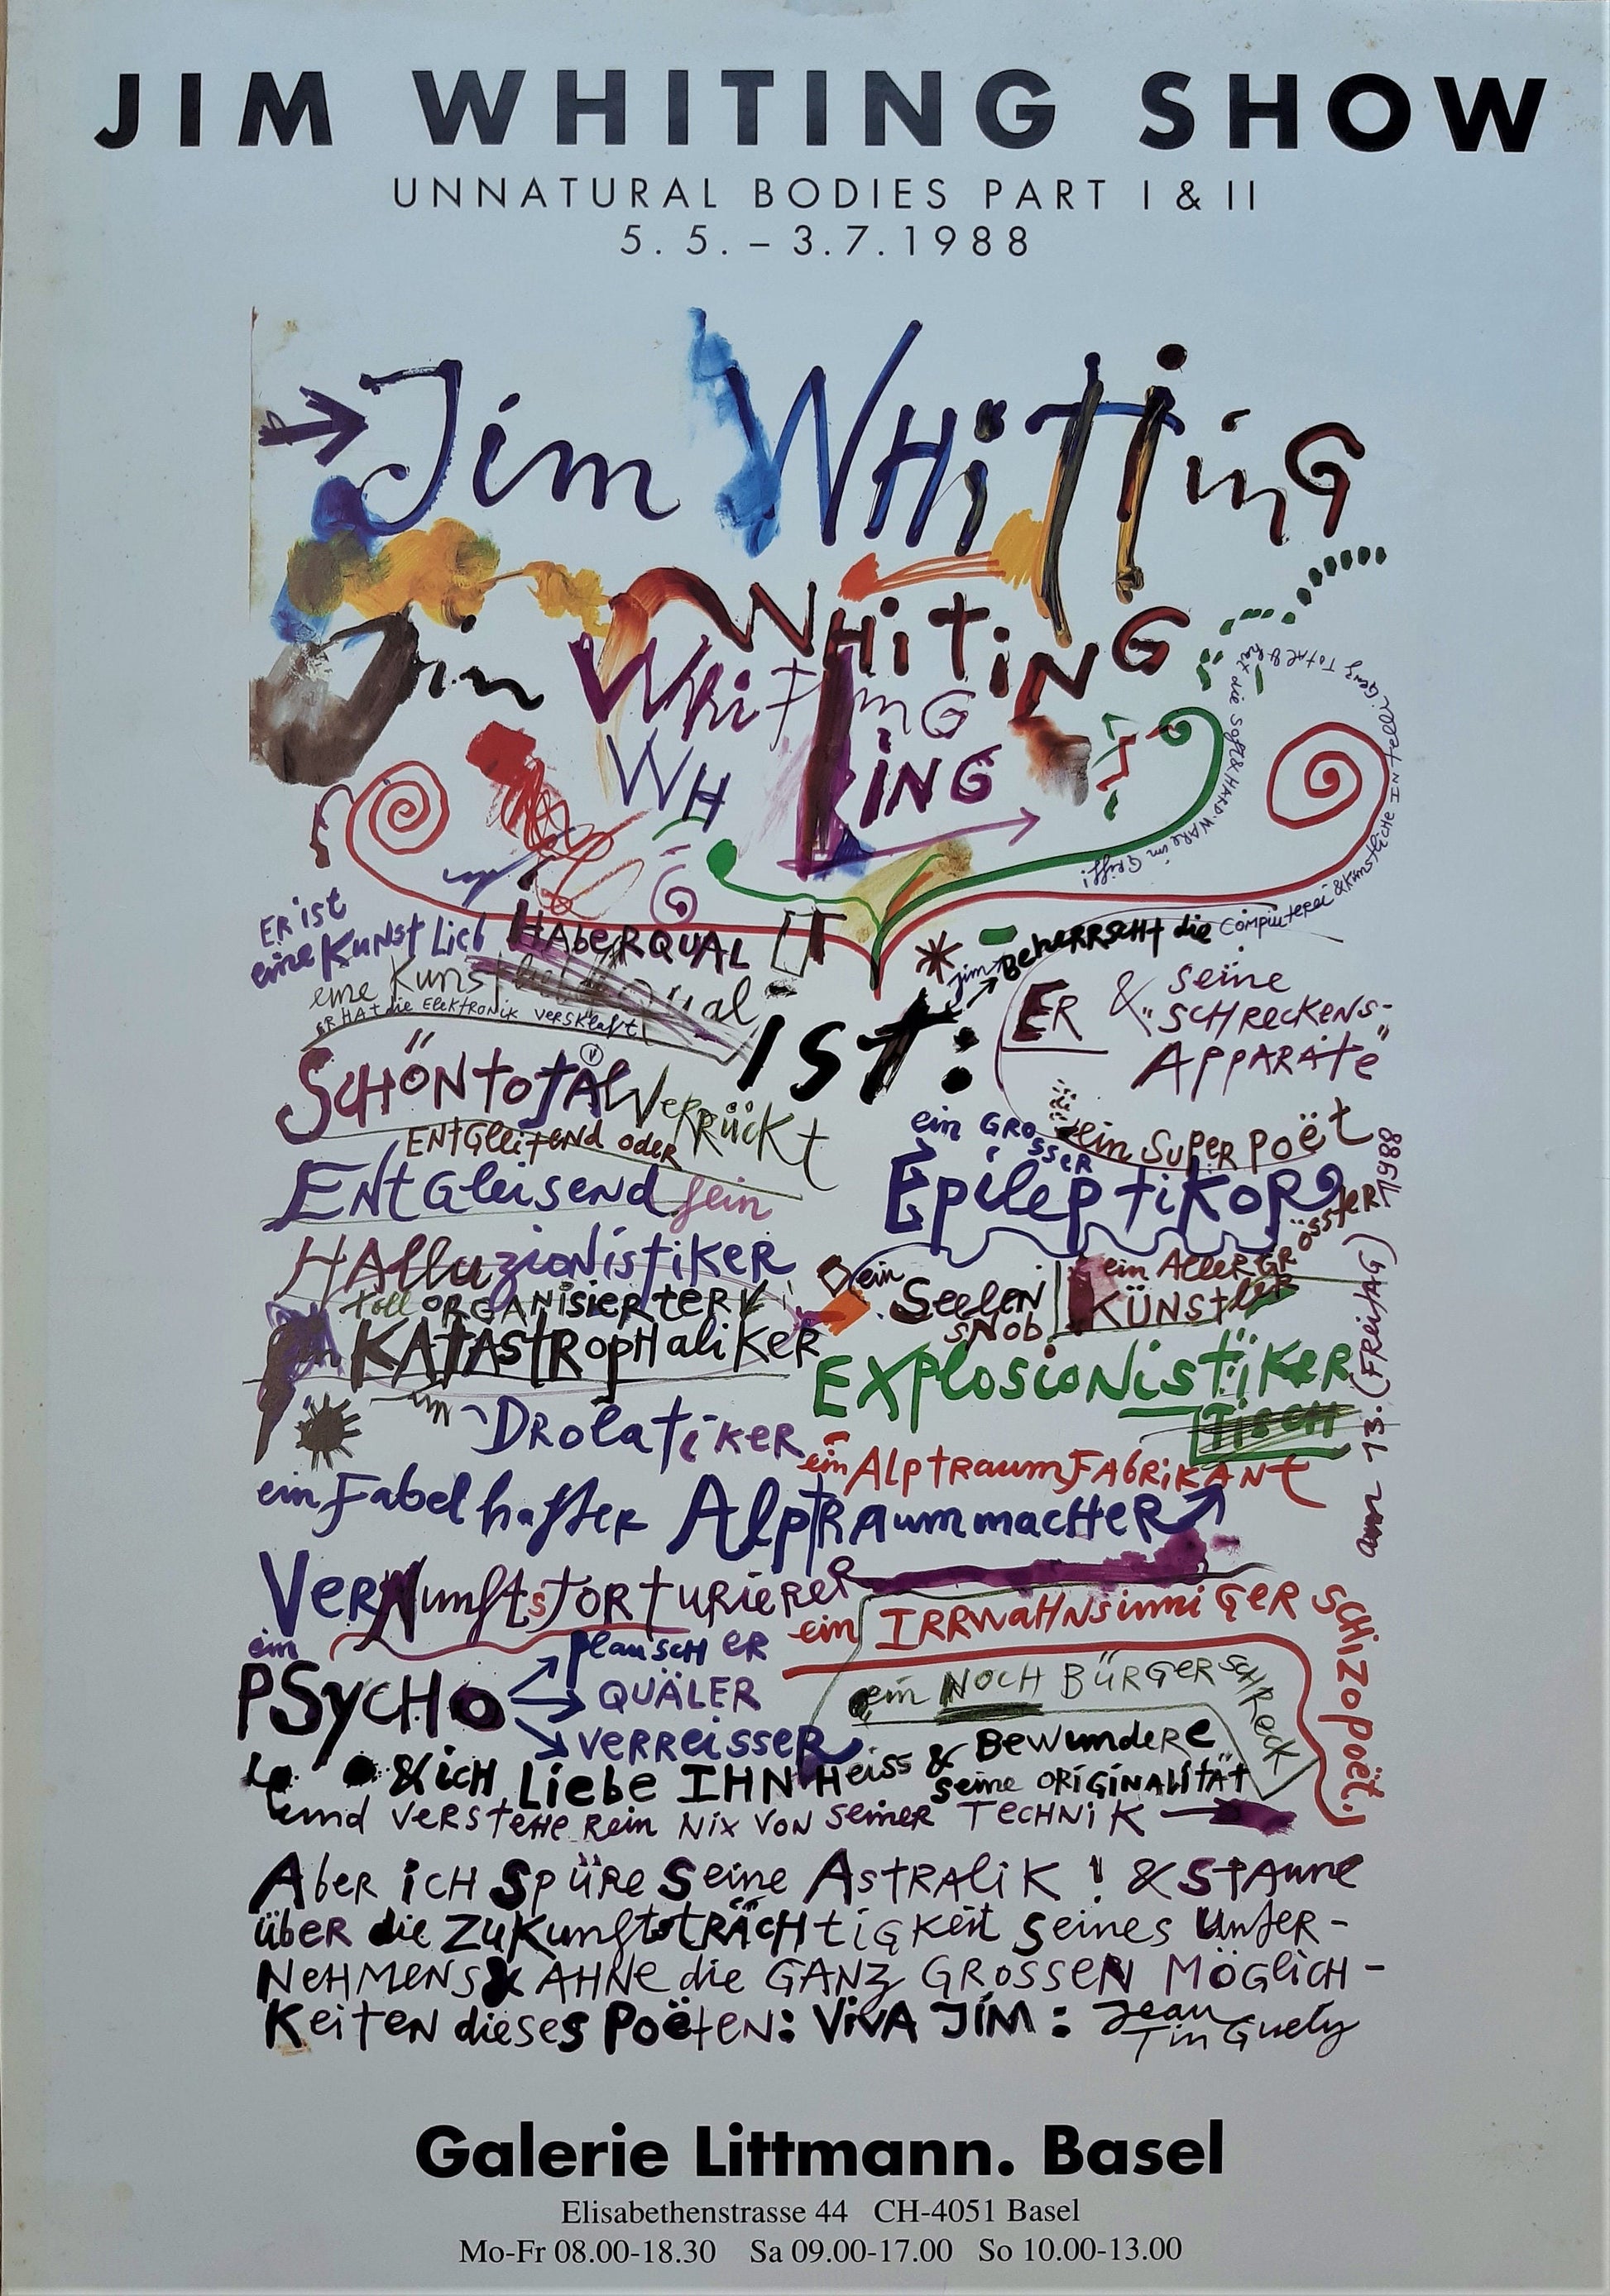 JIM WHITING SHOW
UNNATURAL BODIES PART I & II
5. 5. – 3.7.1988
Jim WHiTTinG
Jim WHiTiNG
WhiTinG
WH
iNG
ER ist
eine KuNst Lieb HAbeRQUAL
eine Kunst
ER HAt die ElektRoNik veRsklaft
ist:
Jim BeheRRscHt die CompiuteRei & Künstliche INtelli
hat die soft & HARD-WARe im Griff!
ER & seine
"scHReckens-
AppARAte"
SCHÖN totAl VeRRückt
ENtGleitend odeR
ENtGleisend sein
ein GRosseR
EpilEptikoR
ein SupeR poët
HAlluzionistikeR
toll oRGANisieRteR
KAtAstRopHalikeR
ein SeelenN
sNob
ein AlleRGRössteR
KÜNstleR
EXplosioNistikeR
tiscH
am 13. (FReitAG) 1988
DRolatikeR
ein AlptRaumFAbRikANt
ein FabelhafteR AlptRaummacHeR
VeRNunftstoRtuRieReR
ein IRRwaHNsinniGeR ScHizopoët.
ein
PSycHo
plauscH eR
QUÄLER
veRReisseR
ein NocH BÜRGeRscHReck
& icH Liebe IHN Heiss & BewundeRe
seine oRiGiNAlität
und veRsteHe Rein Nix voN seineR TecHNiK
AbeR icH spüRe seine AstRAliK ! & stAune
übeR die ZuKunftstRÄcHtiGKeit seines unteR-
NeHMeNs & AHNe die GANZ GRosseN MöGlicH-
KeiteN dieses PoëteN: ViVA JiM: Jean
TinGuely
Galerie Littmann. Basel
Elisabethenstrasse 44 CH-4051 Basel
Mo-Fr 08.00-18.30 Sa 09.00-17.00 So 10.00-13.00